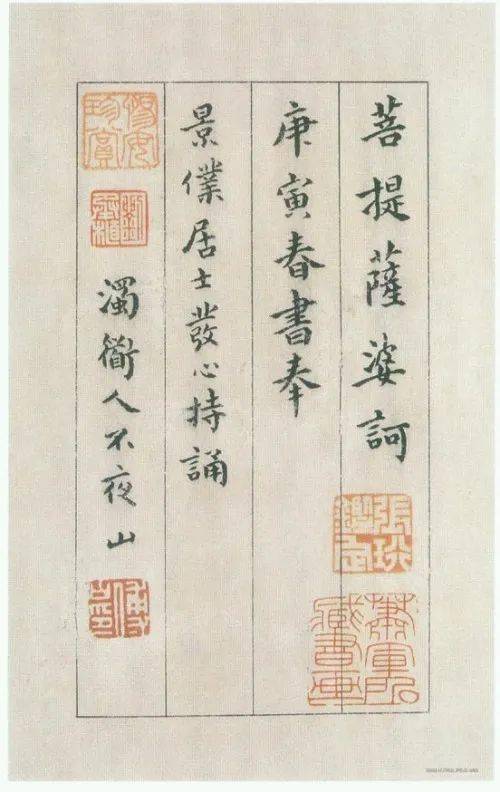 菩提薩婆訶
庚寅春書奉
景僕居士發心持誦
濁衜人不夜山
惕安珍賞